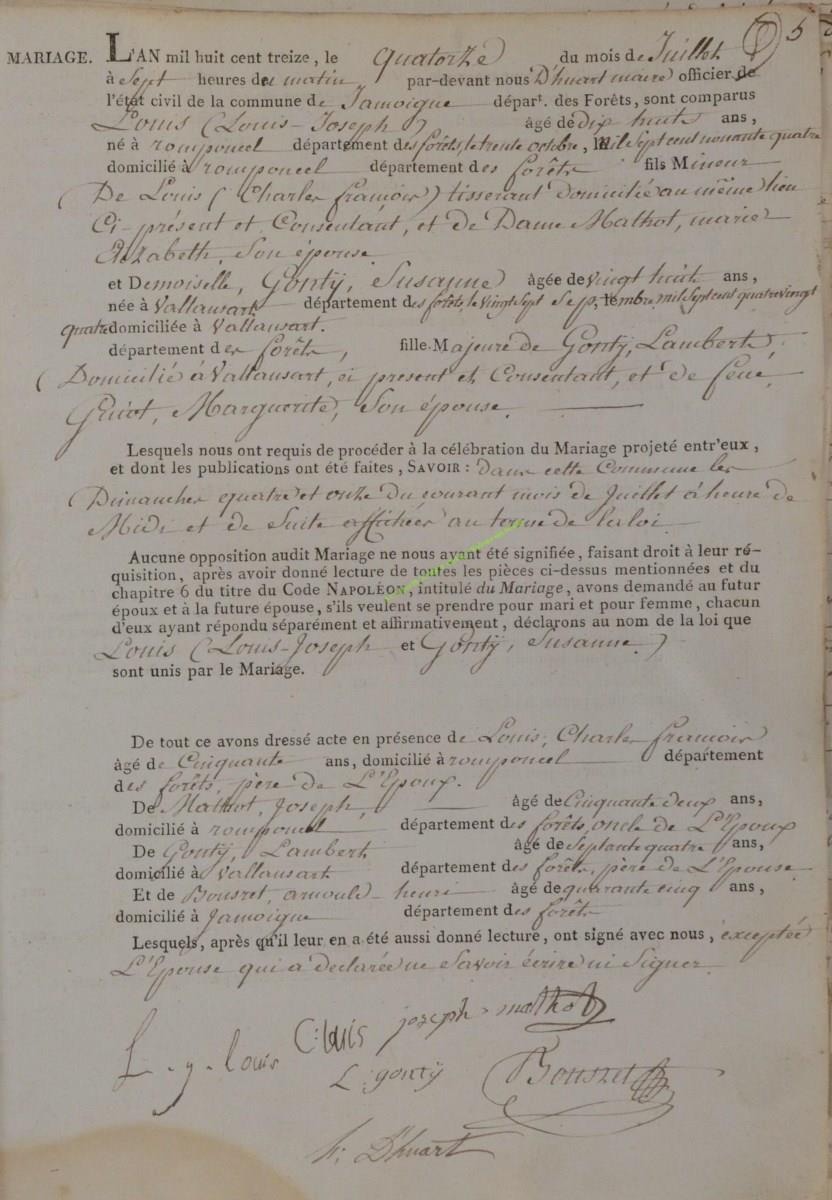 5
MARIAGE. L'AN mil huit cent treize, le quatorze du mois de Juillet
à Sept heures du matin par-devant nous D'huart maire officier de
l'état civil de la commune de Jamoigne départ. des Forêts, sont comparus
Louis (Louis-Joseph) âgé de Dix huit ans,
né à romponcel département des forêts, le trente octobre, Mil Sept cent nonante quatre
domicilié à romponcel département des forêts fils Mineur
De Louis (Charles francois) tisserant Domicilié au même lieu
Ci-présent et Consentant, et de Dame Mathot, marie
Elizabeth, Son épouse
et Demoiselle, Gonty, Susanne âgée de vingt huit ans,
née à Vallansart département des forêts, le vingt Sept Septembre mil Sept cent quatre vingt
quatre domiciliée à Vallansart.
département des forêts, fille Majeure de Gonty, Lambert,
Domicilié à Vallansart, ci present et Consentant, et de feue
Guiot, Marguerite, Son épouse.
Lesquels nous ont requis de procéder à la célébration du Mariage projeté entr'eux,
et dont les publications ont été faites, SAVOIR : Dans cette Commune les
Dimanches quatre et onze du courant mois de Juillet à heure de
Midi et de Suite affichées au terme de la loi
Aucune opposition audit Mariage ne nous ayant été signifiée, faisant droit à leur ré-
quisition, après avoir donné lecture de toutes les pièces ci-dessus mentionnées et du
chapitre 6 du titre du Code NAPOLÉON, intitulé du Mariage, avons demandé au futur
époux et à la future épouse, s'ils veulent se prendre pour mari et pour femme, chacun
d'eux ayant répondu séparément et affirmativement, déclarons au nom de la loi que
Louis (Louis-Joseph et Gonty, Susanne)
sont unis par le Mariage.
De tout ce avons dressé acte en présence de Louis, Charles francois
âgé de Cinquante ans, domicilié à romponcel département
des forêts, père de L'Epoux.
De Mathot, Joseph, âgé de Cinquante deux ans,
domicilié à romponcel département des forêts, oncle de L'Epoux
De Gonty, Lambert âgé de Septante quatre ans,
domicilié à Vallansart département des forêts, père de L'Epouse
Et de Bousret, arnould-henri âgé de quarante cinq ans,
domicilié à Jamoigne département des forêts
Lesquels, après qu'il leur en a été aussi donné lecture, ont signé avec nous, exceptée
L'Epouse qui a declarée ne Savoir écrire ni Signer
L. y. louis C: louis joseph mathot
L: gonty Bousret
h: D'huart